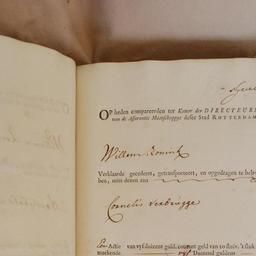 OP heden compareerden ter Kamer der DIRECTEURE
van de Assurantie Maatschappye deser Stad ROTTERDAM
Willem Konink
Verklaarde gecedeert, getransporteert, en opgedragen te heb-
ben, mits desen aan
Cornelis Verbrugge
Een Actie van vyf duizent guld. courant geld van 20 stuiv. 't stuk
vyf Duizend guldens